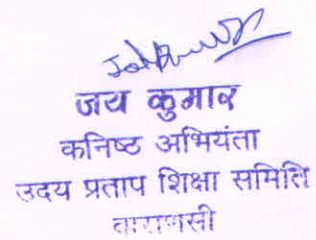 जय कुमार
कनिष्ठ अभियंता
उदय प्रताप शिक्षा समिति
वाराणसी